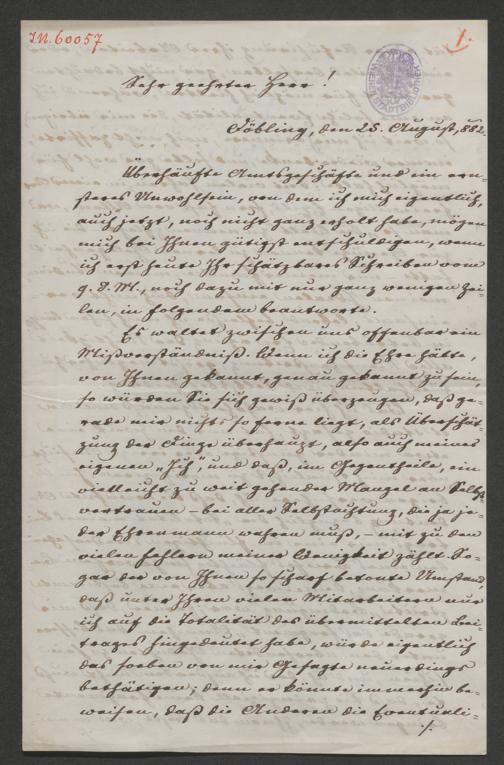 I.N. 60057
1.
Sehr geehrter Herr!
Döbling, den 25. August, 882.
Überhäufte Amtsgeschäfte und ein ern-
steres Unwohlsein, von dem ich mich eigentlich,
auch jetzt, noch nicht ganz erholt habe, mögen
mich bei Ihnen gütigst entschuldigen, wenn
ich erst heute Ihr schätzbares Schreiben vom
9. d. M., noch dazu mit nur ganz wenigen Zei-
len, in folgendem beantworte.
Es waltet zwischen uns offenbar ein
Mißverständniß. Wenn ich die Ehre hätte,
von Ihnen gekannt, genau gekannt zu sein,
so würden Sie sich gewiß überzeugen, daß ge-
rade mir nichts so ferne liegt, als Überschät-
zung der Dinge überhaupt, also auch meines
eigenen „Ich“, und daß, im Gegentheile, ein
vielleicht zu weit gehender Mangel an Selbst-
vertrauen – bei aller Selbstachtung, die ja je-
der Ehrenmann wahren muß, – mit zu den
vielen Fehlern meiner Wenigkeit zählt. So-
gar der von Ihnen so scharf betonte Umstand,
daß unter Ihren vielen Mitarbeitern nur
ich auf die Totalität des übermittelten Bei-
trages hingedeutet habe, würde eigentlich
das soeben von mir Gesagte neuerdings
bethätigen; denn er könnte immerhin be-
weisen, daß die Anderen die Eventuali-
./.